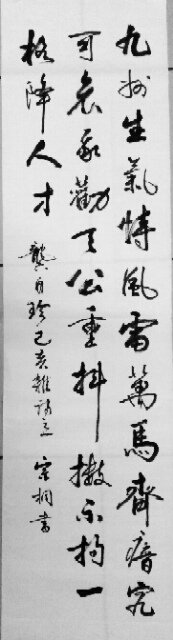 九州生氣恃風雷萬馬齊瘖究
可哀我勸天公重抖擻不拘一
格降人才
龔自珍己亥雜詩 桐書